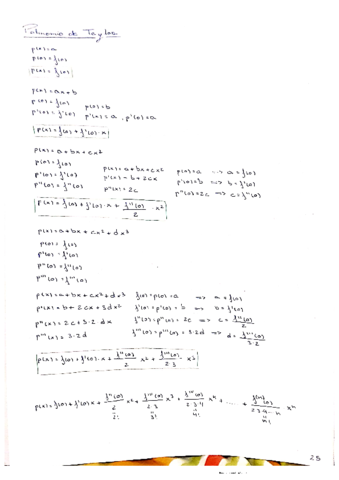 Polinomio de Taylor
p(x) = a
p(0) = f(0)
p(x) = f(0)
p(x) = ax + b
p(0) = f(0) p(0) = b
p'(0) = f'(0) p'(x) = a, p'(0) = a
p(x) = f(0) + f'(0)·x
p(x) = a + bx + cx²
p(0) = f(0) p(x) = a + bx + cx² p(0) = a → a = f(0)
p'(0) = f'(0) p'(x) = b + 2cx p'(0) = b ⇒ b = f'(0)
p''(0) = f''(0) p''(x) = 2c p''(0) = 2c ⇒ c = f''(0)
p(x) = f(0) + f'(0)·x + f''(0)/2 · x²
p(x) = a + bx + cx² + dx³
p(0) = f(0)
p'(0) = f'(0)
p''(0) = f''(0)
p'''(0) = f'''(0)
p(x) = a + bx + cx² + dx³ f(0) = p(0) = a ⇒ a = f(0)
p'(x) = b + 2cx + 3dx² f'(0) = p'(0) = b ⇒ b = f'(0)
p''(x) = 2c + 3·2 dx f''(0) = p''(0) = 2c ⇒ c = f''(0)/2
p'''(x) = 3·2d f'''(0) = p'''(0) = 3·2d ⇒ d = f'''(0)/3·2
p(x) = f(0) + f'(0)·x + f''(0)/2 x² + f'''(0)/2·3 · x³
p(x) = f(0) + f'(0)x + f''(0)/2 x² + f'''(0)/2·3 x³ + f''''(0)/2·3·4 x⁴ + ...... + f(0)/2·3·4···n xⁿ
2! 3! 4! n!
25